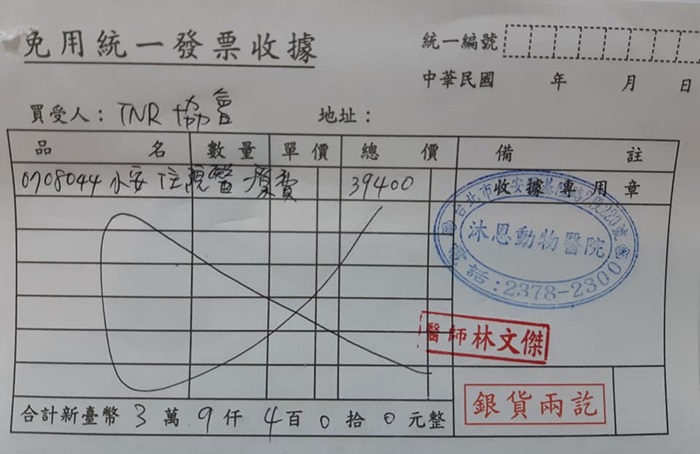 免用統一發票收據
統一編號
中華民國 年 月 日
買受人：TNR 協會 地址：
品名 數量 單價 總價 備註
0708044 小安 住院醫療費 39400 收據專用章
台北市 安 基 路 段223號
沐恩動物醫院
電話：2378-2300
醫師林文傑
銀貨兩訖
合計新臺幣 3 萬 9 仟 4 百 0 拾 0 元整